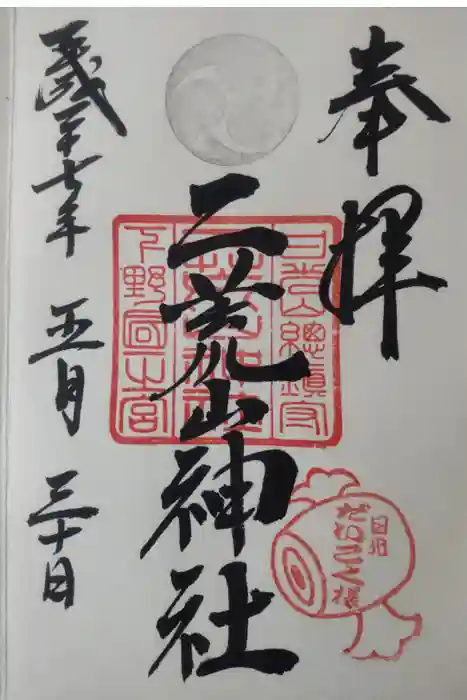 奉拝
日光山總鎮守
二荒山神社
下野国一之宮
日光
だいこく様
平成二十七年五月三十日